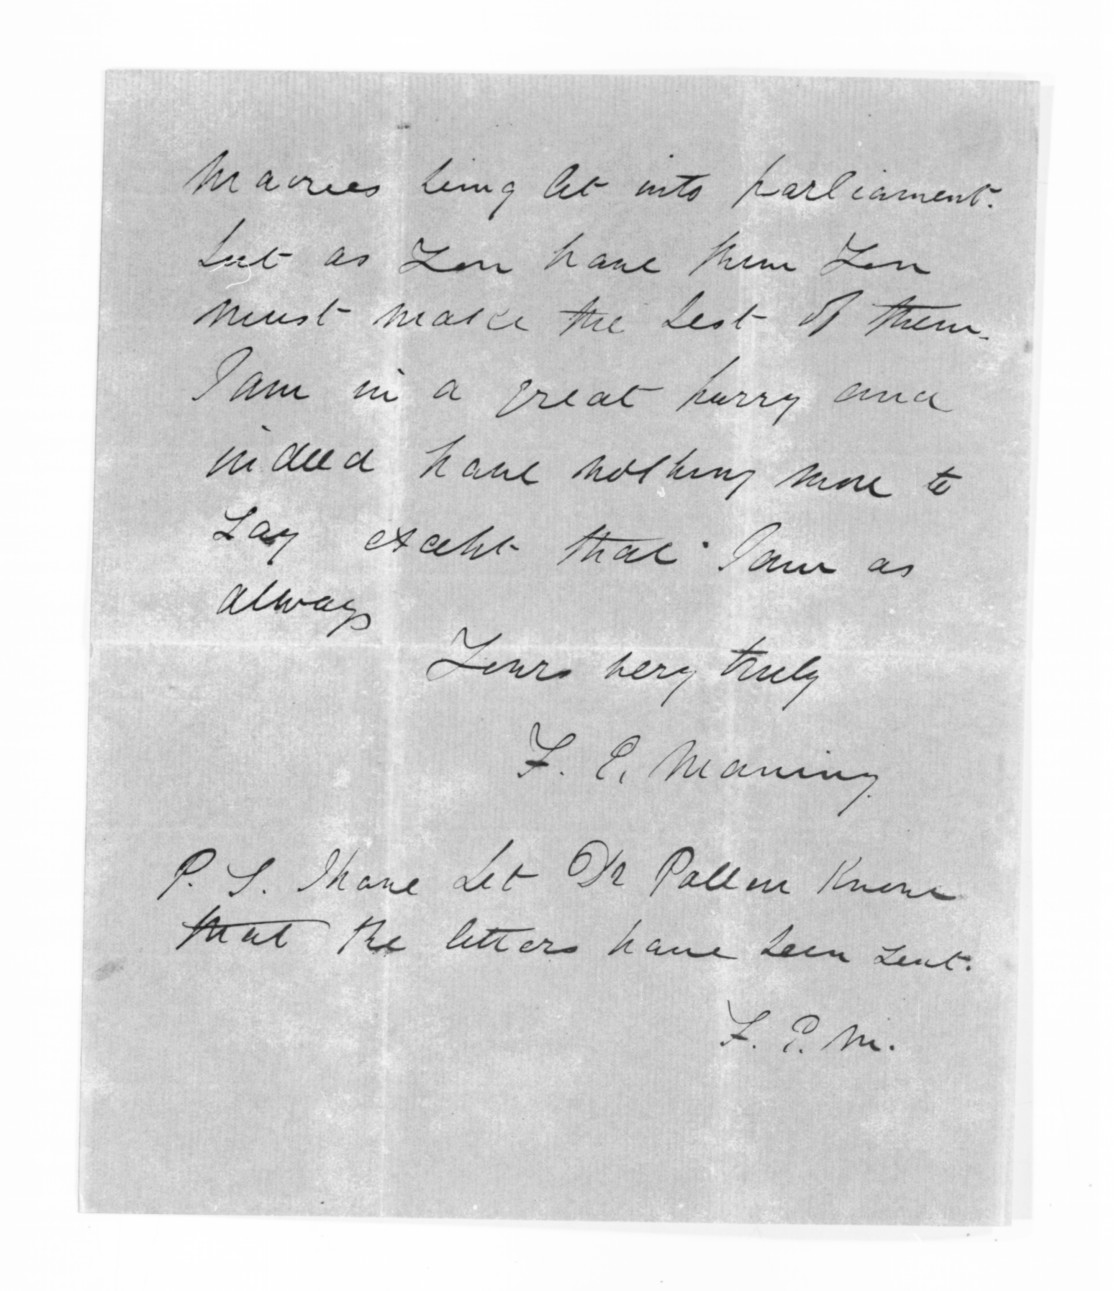 Maories being let into parliament.
but as You have them You
must make the best of them.
I am in a great hurry and
indeed have nothing more to
say except that I am as
always
Yours very truly
F. E. Maning.
P. S. I have let Dr Pollen know
that the letters have been sent.
F. E. M.